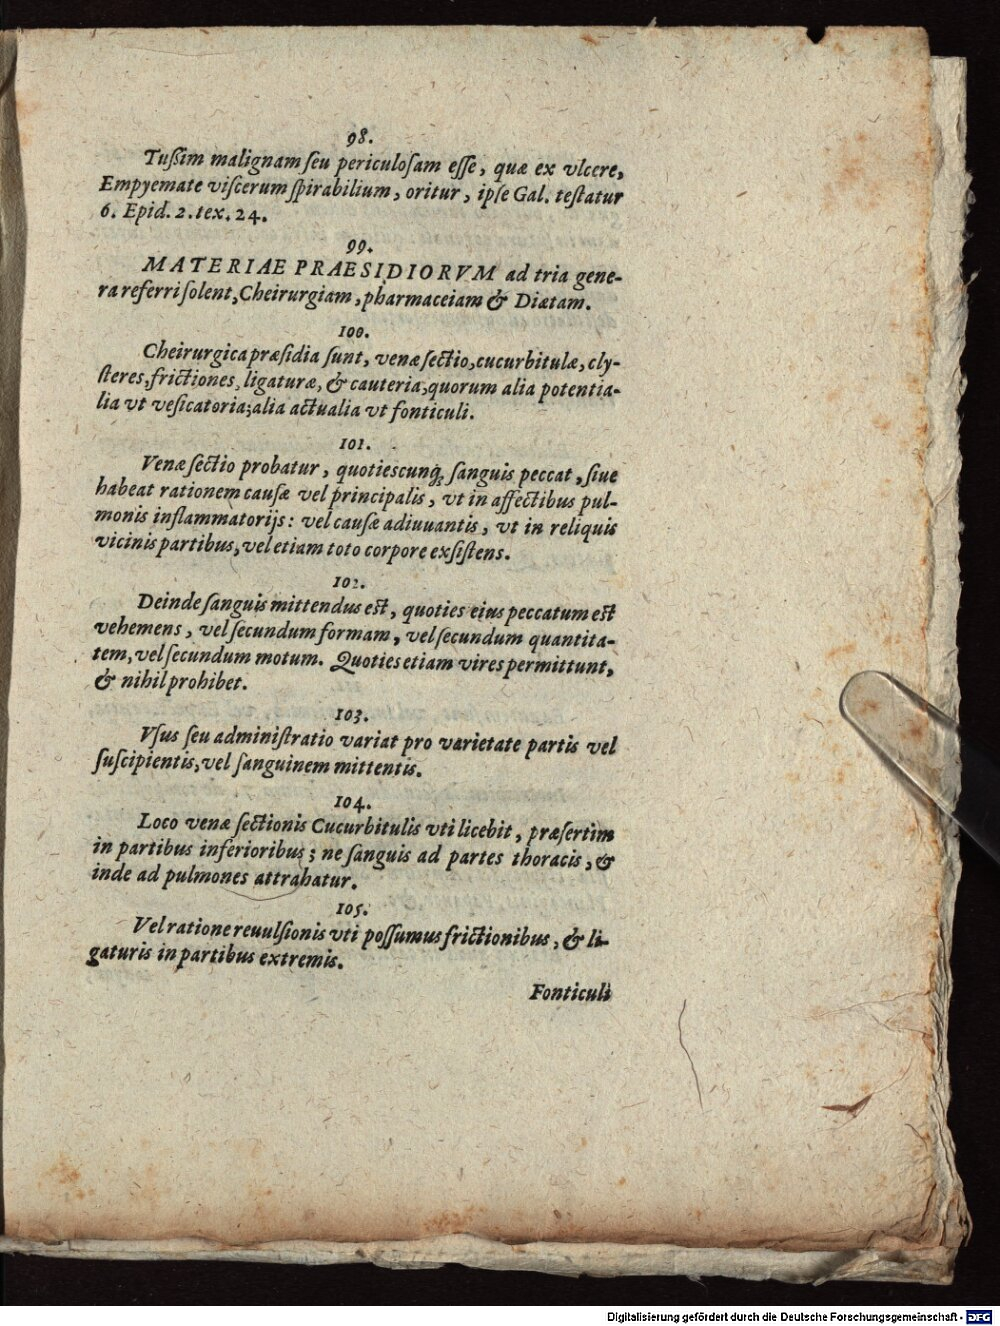 98.
Tußim malignam ſeu periculoſam eſſe, quæ ex vlcere,
Empyemate viſcerum ſpirabilium, oritur, ipſe Gal. teſtatur
6. Epid. 2. tex. 24.
99.
MATERIAE PRAESIDIORVM ad tria gene-
ra referri ſolent, Cheirurgiam, pharmaceiam & Diætam.
100.
Cheirurgica præſidia ſunt, venæ ſectio, cucurbitulæ, cly-
ſteres, frictiones, ligaturæ, & cauteria, quorum alia potentia-
lia vt veſicatoria; alia actualia vt fonticuli.
101.
Venæ ſectio probatur, quotiescunq; ſanguis peccat, ſiue
habeat rationem cauſæ vel principalis, vt in affectibus pul-
monis inflammatorijs: vel cauſæ adiuuantis, vt in reliquis
vicinis partibus, vel etiam toto corpore exſiſtens.
102.
Deinde ſanguis mittendus eſt, quoties eius peccatum eſt
vehemens, vel ſecundum formam, vel ſecundum quantita-
tem, vel ſecundum motum. Quoties etiam vires permittunt,
& nihil prohibet.
103.
Vſus ſeu adminiſtratio variat pro varietate partis vel
ſuſcipientis, vel ſanguinem mittentis.
104.
Loco venæ ſectionis Cucurbitulis vti licebit, præſertim
in partibus inferioribus; ne ſanguis ad partes thoracis, &
inde ad pulmones attrahatur.
105.
Vel ratione reuulſionis vti poſſumus frictionibus, & li-
gaturis in partibus extremis.
Fonticuli
Digitalisierung gefördert durch die Deutsche Forschungsgemeinschaft - DFG